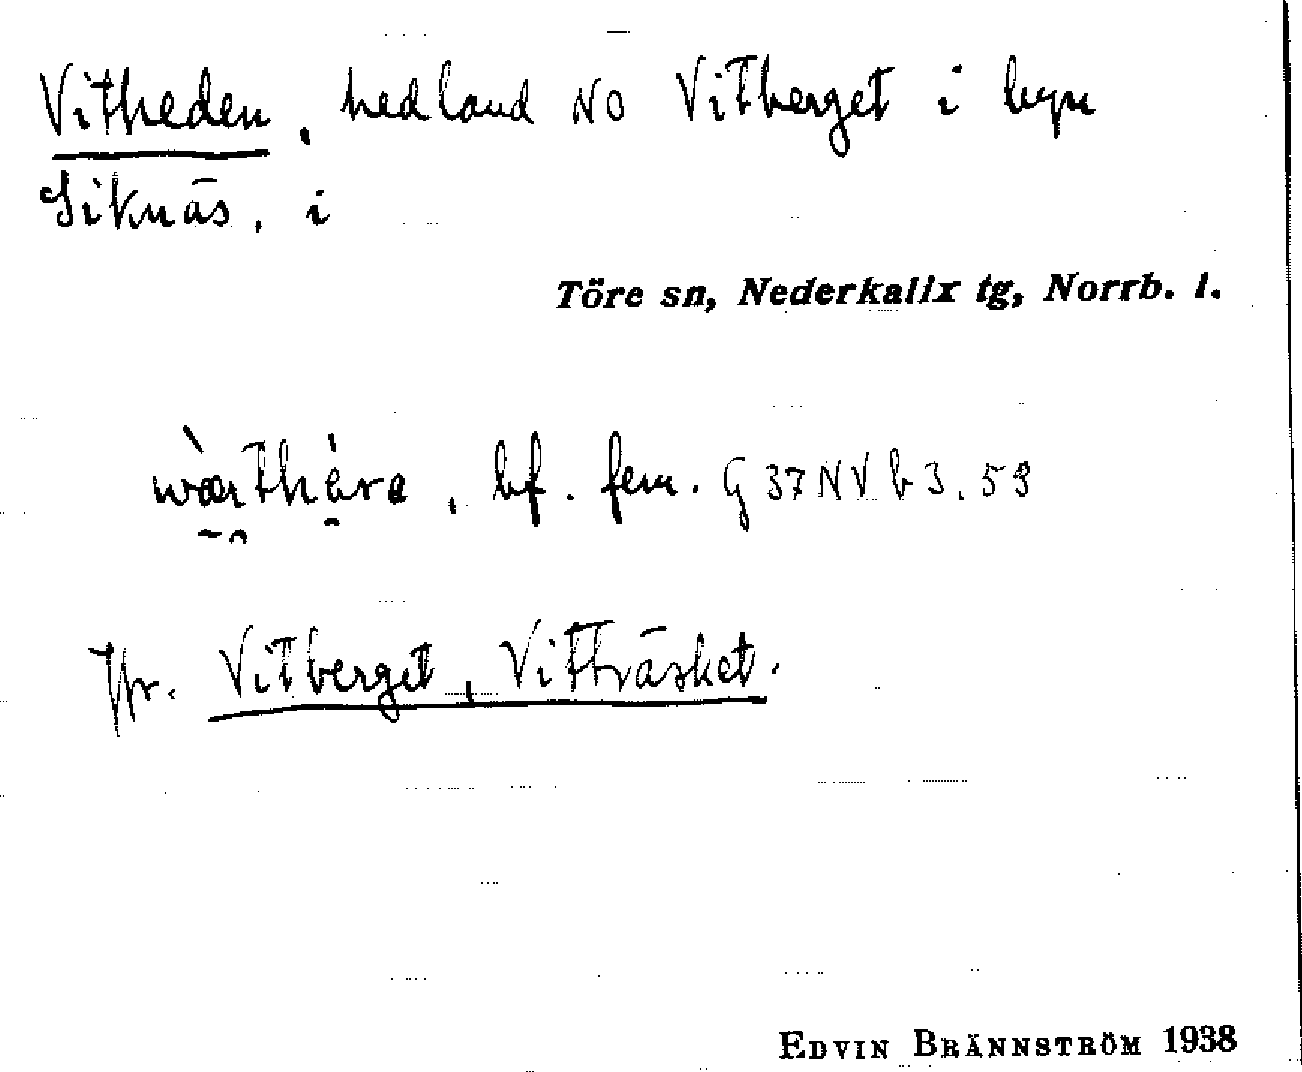 Vitheden, hedland NO Vitberget i byn
Siknäs, i
Töre sn, Nederkalix tg, Norrb. l.
, bf. fem. G 37 NV b 3. 53
Jfr. Vitberget, Vitträsket.
EDVIN BRÄNNSTRÖM 1938